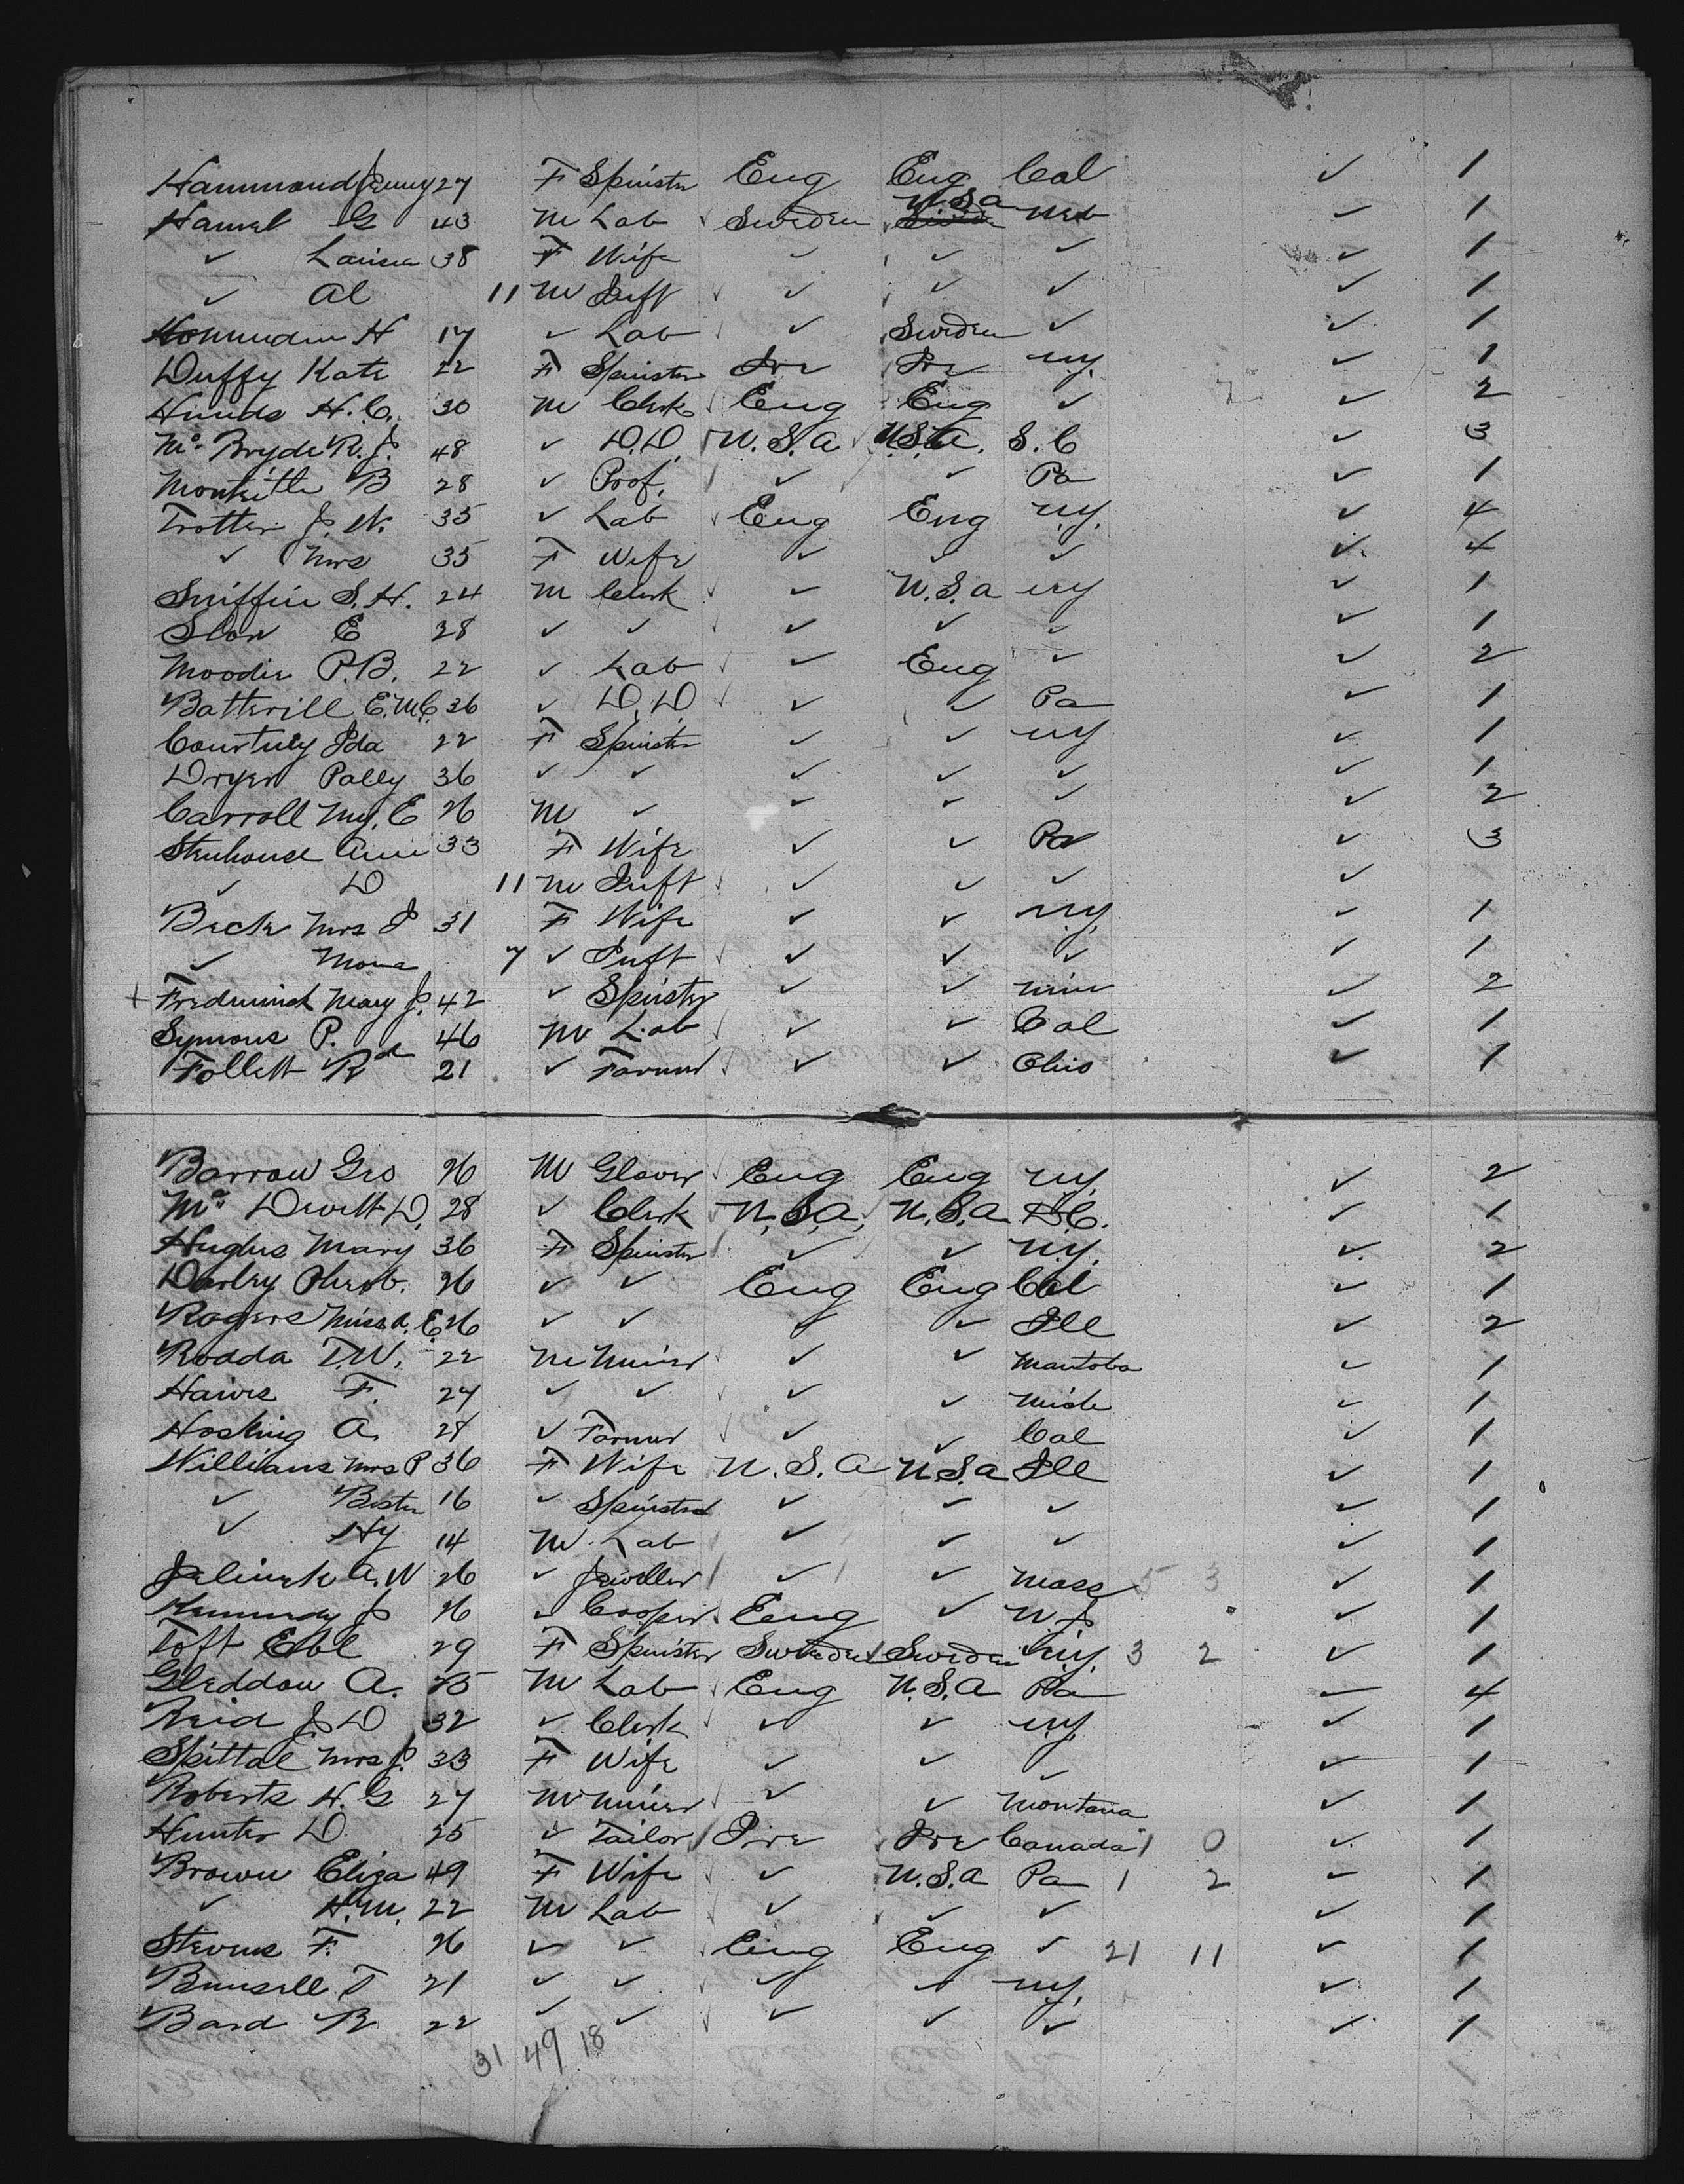 Hammond Jenny 27 F Spinster Eng Eng Cal ✓ 1
Hamel G 43 M Lab Sweden U.S.a Neb ✓ 1
✓ Louisa 38 F Wife ✓ ✓ ✓ ✓ 1
✓ Al 11 M Inft ✓ ✓ ✓ ✓ 1
H 17 ✓ Lab ✓ Sweden ✓ ✓ 1
Duffy Kate 22 F Spinster Ire Ire ny. ✓ 1
H.C. 30 M Clerk Eng Eng ✓ ✓ 2
Mc Bryde R.J. 48 ✓ D.D. U.S.a U.S.a. S.C ✓ 3
B 28 ✓ Prof. ✓ ✓ Pa ✓ 1
Trotter J.W. 35 ✓ Lab Eng Eng ny. ✓ 4
✓ Mrs 35 F Wife ✓ ✓ ✓ ✓ 4
Sniffin S.H. 24 M Clerk ✓ U.S.a ny ✓ 1
Slow E 28 ✓ ✓ ✓ ✓ ✓ ✓ 1
Moodie P.B. 22 ✓ Lab ✓ Eng ✓ ✓ 2
Batterill E.M.C. 36 ✓ D.D ✓ ✓ Pa ✓ 1
Courtney Ida 22 F Spinster ✓ ✓ ny ✓ 1
Dryer Polly 36 ✓ ✓ ✓ ✓ ✓ ✓ 1
Carroll E 26 M ✓ ✓ ✓ ✓ ✓ 2
Stenhouse Annie 33 F Wife ✓ ✓ Pa ✓ 3
✓ D 11 M Inft ✓ ✓ ✓ ✓ 1
Beck Mrs J 31 F Wife ✓ ✓ ny. ✓ 1
✓ Mona 7 ✓ Inft ✓ ✓ ✓ ✓ 1
+ Mary J. 42 ✓ Spinster ✓ ✓ Minn ✓ 2
Symons P. 46 M Lab ✓ ✓ Cal ✓ 1
Follett Rd 21 ✓ Farmer ✓ ✓ Ohio ✓ 1
Barrow Geo 26 M Glover Eng Eng ny. ✓ 2
Mc Devitt D. 28 ✓ Clerk U.S.a. U.S.a D.C. ✓ 1
Hughes Mary 36 F Spinster ✓ ✓ n.y. ✓ 2
Darley Pheob. 26 ✓ ✓ Eng Eng Cal ✓ 1
Rogers Miss A.E. 26 ✓ ✓ ✓ ✓ Ill ✓ 2
Rodda T.W. 22 M Miner ✓ ✓ Manitoba ✓ 1
F. 27 ✓ ✓ ✓ ✓ Mich ✓ 1
Hosking A. 28 ✓ Farmer ✓ ✓ Cal ✓ 1
Williams Mrs P 36 F Wife U.S.a U.S.a Ill ✓ 1
✓ 16 ✓ Spinster ✓ ✓ ✓ ✓ 1
✓ Hy 14 M Lab ✓ ✓ ✓ ✓ 1
Jelinek A.W 26 ✓ Jeweller ✓ ✓ Mass 5 3 ✓ 1
Kennedy J 26 ✓ Cooper Eng ✓ N.J. ✓ 1
Toft 29 F Spinster Sweden Sweden ny. 3 2 ✓ 1
Gleddow A. 75 M Lab Eng U.S.A Pa ✓ 4
Reid J.D 32 ✓ Clerk ✓ ✓ ny. ✓ 1
Spittal Mrs J. 33 F Wife ✓ ✓ ✓ ✓ 1
Roberts H.G 27 M Miner ✓ ✓ Montana ✓ 1
Hunter D. 25 ✓ Tailor Ire Ire Canada 1 0 ✓ 1
Brown Eliza 49 F Wife ✓ U.S.a Pa 1 2 ✓ 1
✓ H.M. 22 M Lab ✓ ✓ ✓ ✓ 1
Stevens F. 26 ✓ ✓ Eng Eng ✓ 21 11 ✓ 1
T 21 ✓ ✓ ✓ ✓ ny. ✓ 1
Bard R 22 ✓ ✓ ✓ ✓ ✓ ✓ 1
31 49 18